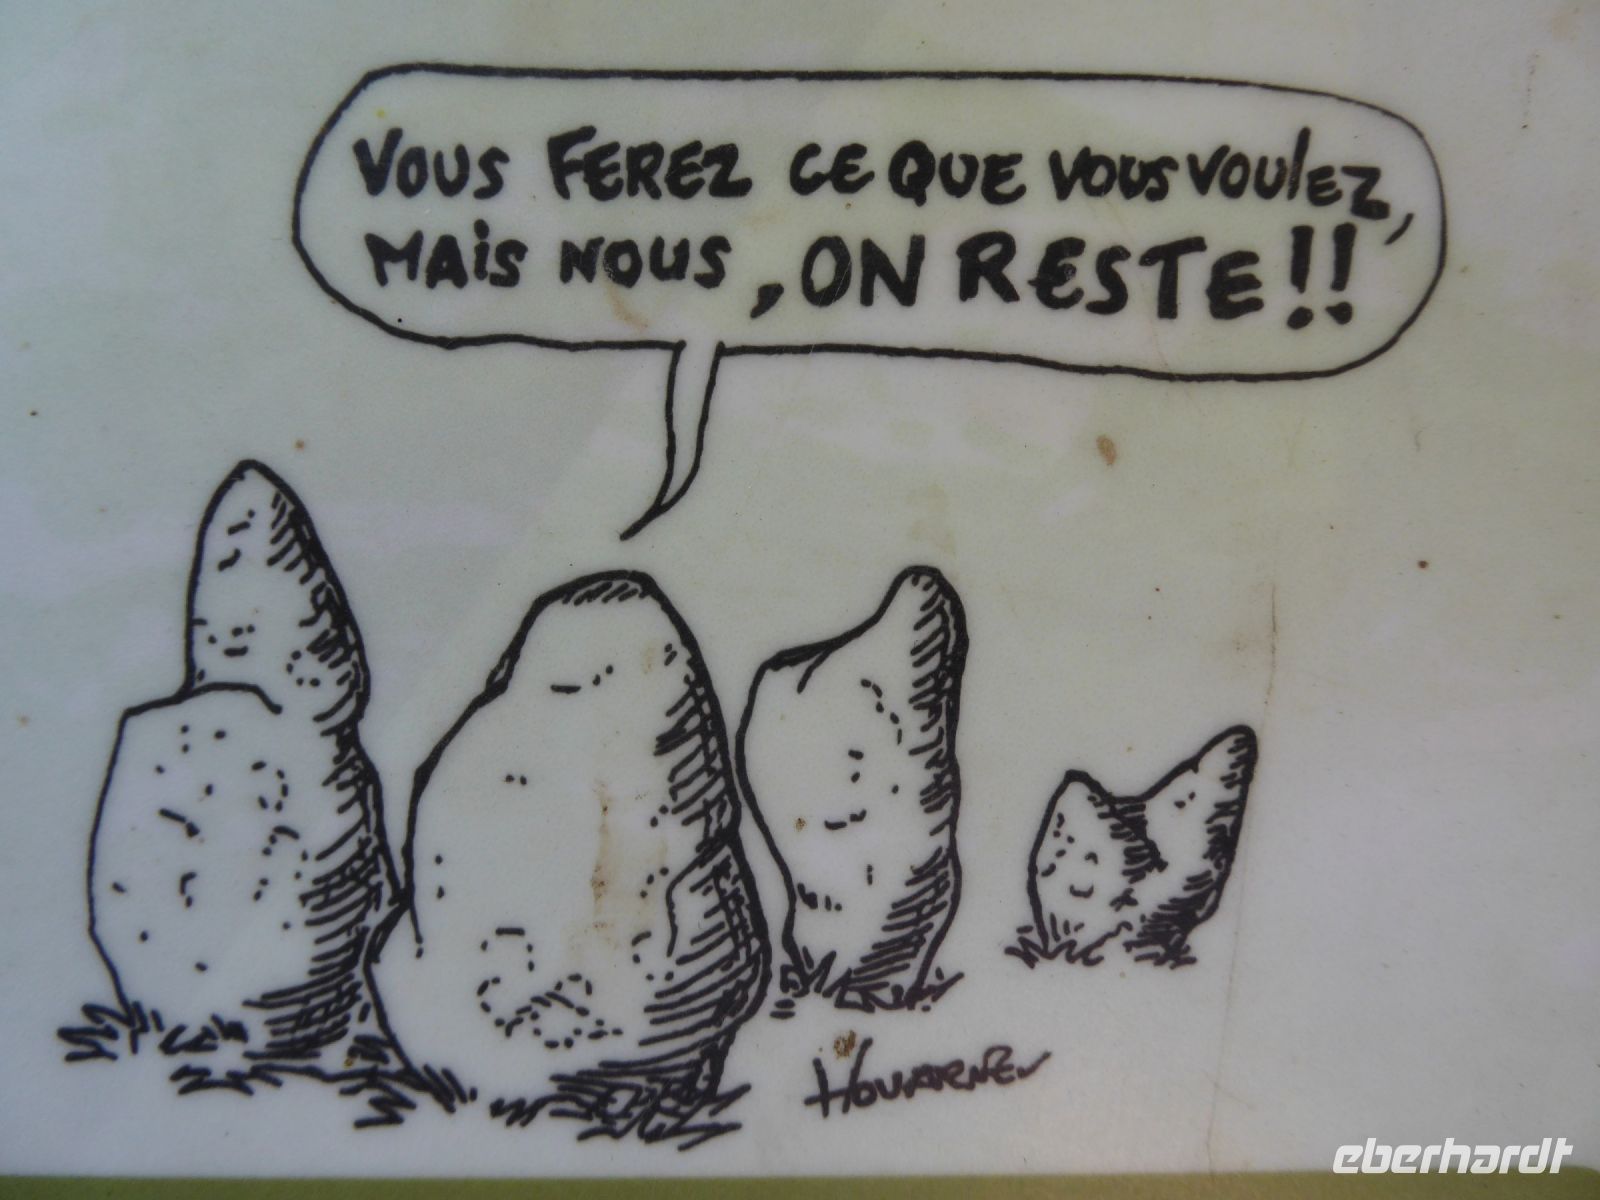 VOUS FEREZ CE QUE VOUS VOULEZ,
MAIS NOUS, ON RESTE!!
eberhardt